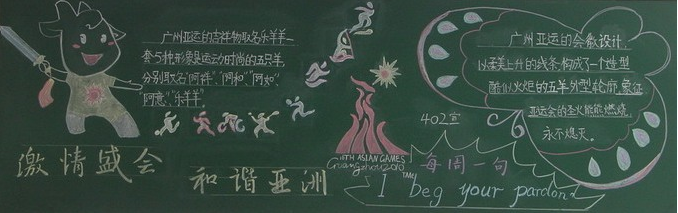 广州亚运的吉祥物取名乐羊羊
套5种形象是运动时尚的五只羊,
分别取名“阿祥”、“阿和”、“阿如”、
“阿意”、“乐羊羊”。
广州亚运的会徽设计,
以柔美上升的线条,构成了一个造型
酷似火炬的五羊外型轮廓,象征
亚运会的圣火熊熊燃烧、
永不熄灭。
402宣
激情盛会
和谐亚洲
16TH ASIAN GAMES
Guangzhou 2010
每周一句
I beg your pardon